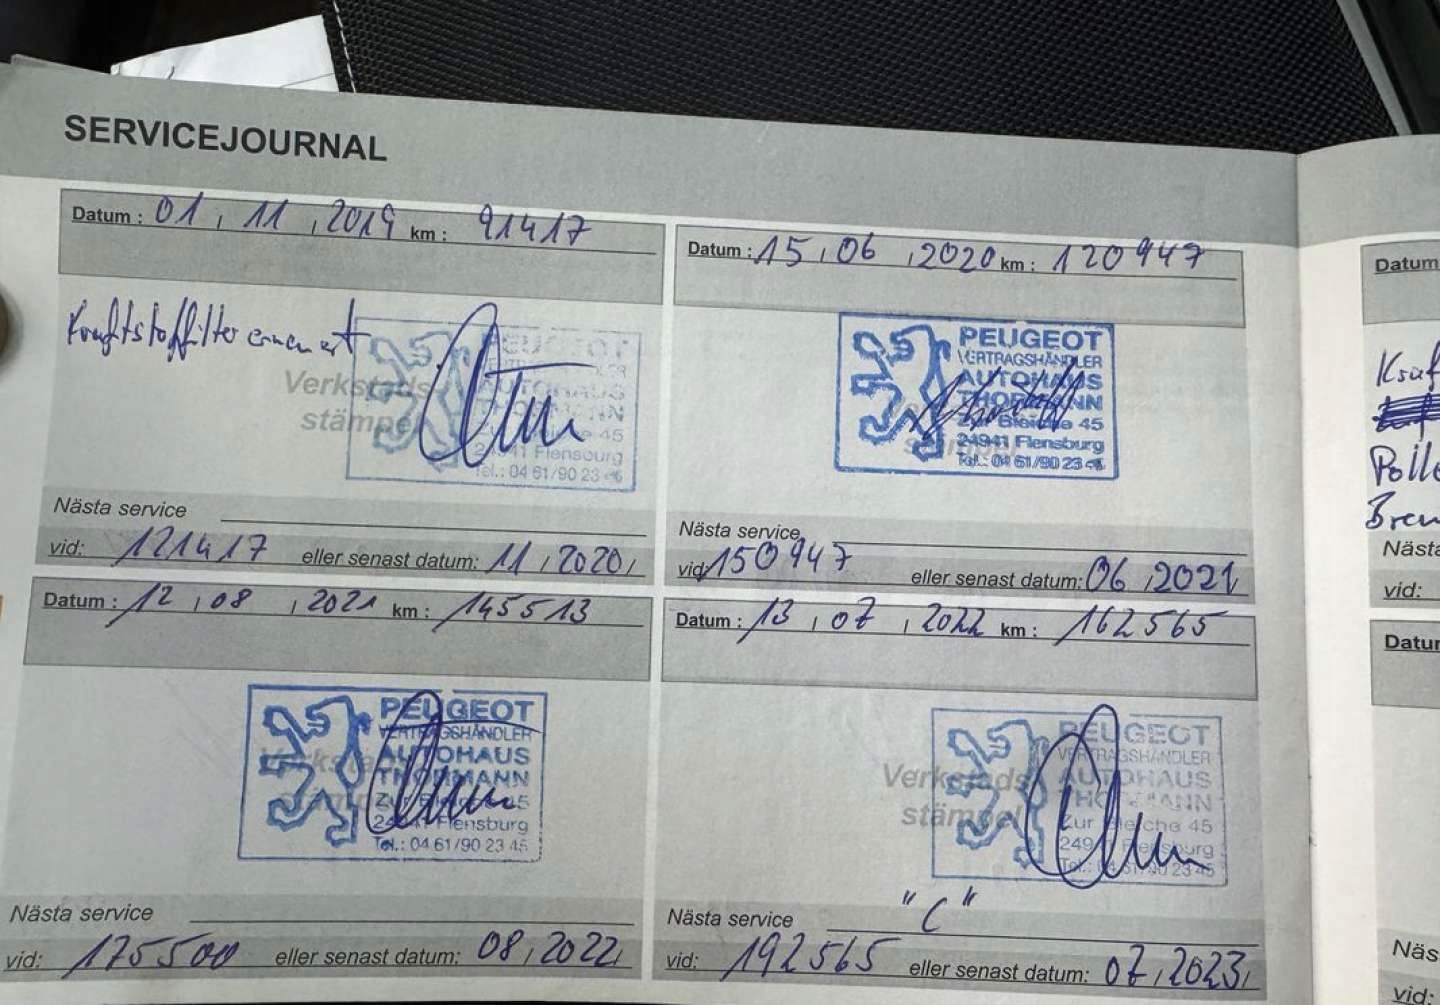 SERVICEJOURNAL
Datum : 01 , 11 , 2019 km : 91417
Kraftstofffilter erneuert
Verkstads
stämpel
PEUGEOT
VERTRAGSHÄNDLER
AUTOHAUS
THORMANN
Zur Bleiche 45
24941 Flensburg
Tel.: 04 61/90 23 45
Nästa service
vid: 121417 eller senast datum: 11 , 2020,
Datum : 15 , 06 , 2020 km : 120947
PEUGEOT
VERTRAGSHÄNDLER
AUTOHAUS
THORMANN
Zur Bleiche 45
24941 Flensburg
Tel.: 04 61/90 23 45
Nästa service
vid: 150947 eller senast datum: 06 , 2021
Datum : 12 , 08 , 2021 km : 145513
Verkstads
stämpel
PEUGEOT
VERTRAGSHÄNDLER
AUTOHAUS
THORMANN
Zur Bleiche 45
24941 Flensburg
Tel.: 04 61/90 23 45
Nästa service
vid: 175500 eller senast datum: 08 , 2022,
Datum : 13 , 07 , 2022 km : 162565
Verkstads
stämpel
PEUGEOT
VERTRAGSHÄNDLER
AUTOHAUS
THORMANN
Zur Bleiche 45
24941 Flensburg
Tel.: 04 61/90 23 45
Nästa service "C"
vid: 192565 eller senast datum: 07 , 2023,
Datum
Kraf
Polle
Brem
Nästa
vid:
Datum
Näs
vid: